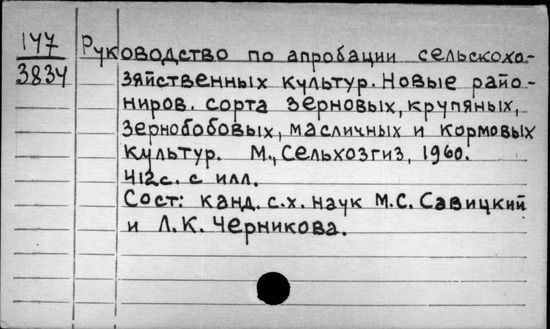 147
3834
Руководство по апробации сельскохо-
зяйственных культур. Новые райо-
ниров. сорта зерновых, крупяных,
зернобобовых, масличных и кормовых
культур. М., Сельхозгиз, 1960.
412с. с илл.
Сост: канд. с.х. наук М.С. Савицкий
и Л.К. Черникова.